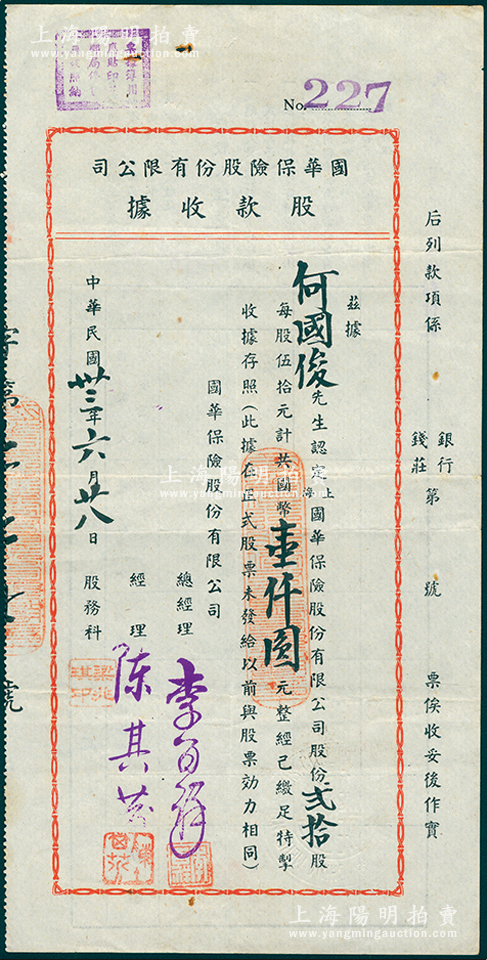 上海陽明拍賣
www.yangmingauction.com
No. 227
國華保險股份有限公司
股款收據
后列款項係銀行錢莊第 號 票俟收妥後作實
茲據
何國俊先生認定上海國華保險股份有限公司股份弍拾股
每股伍拾元計共國幣壹仟圓元整經已繳足特掣
收據存照(此據在正式股票未發給以前與股票効力相同)
國華保險股份有限公司
總經理
經理 陳其
中華民國卅三年六月廿八日
股務科
字第
號
上海陽明拍賣
www.yangmingauction.com
上海陽明拍賣
www.yangmingauction.com